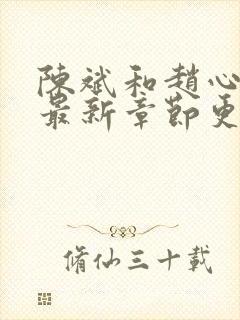 陳斌和趙心
最新章節更
脩仙三十載